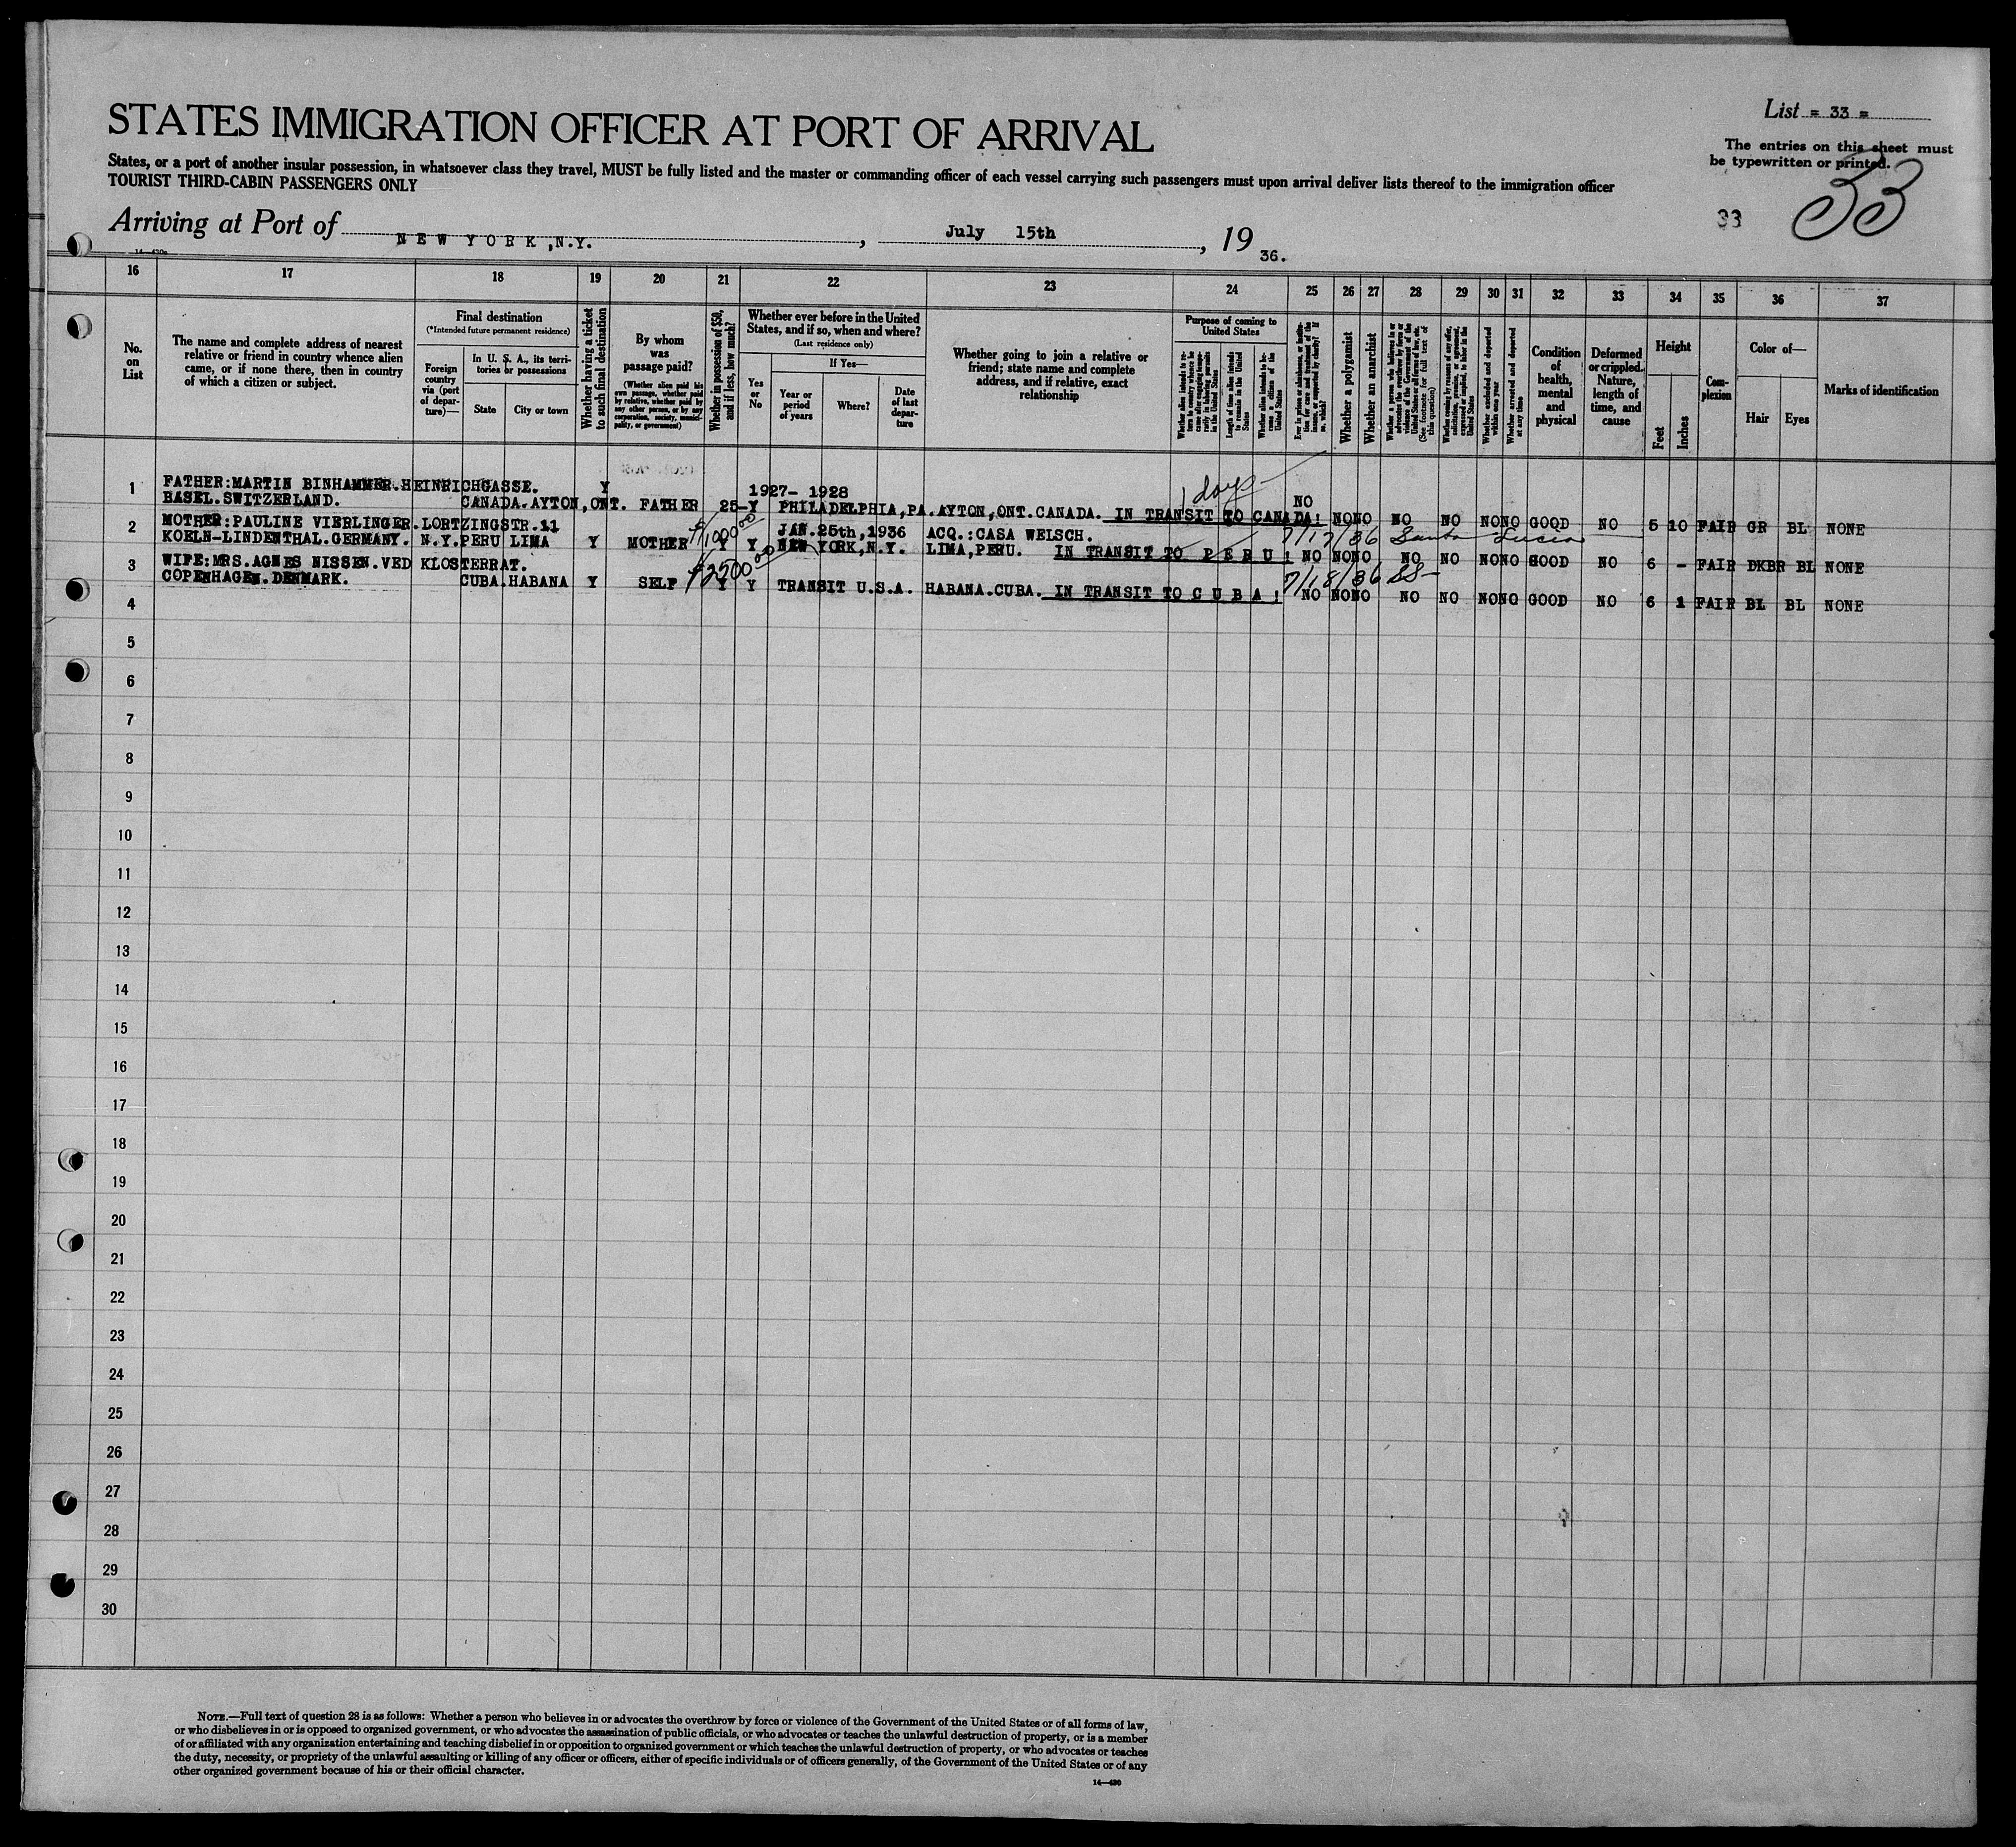 List = 33 =
STATES IMMIGRATION OFFICER AT PORT OF ARRIVAL
The entries on this sheet must
be typewritten or printed.
States, or a port of another insular possession, in whatsoever class they travel, MUST be fully listed and the master or commanding officer of each vessel carrying such passengers must upon arrival deliver lists thereof to the immigration officer
TOURIST THIRD-CABIN PASSENGERS ONLY
33 33
Arriving at Port of NEW YORK,N.Y., July 15th, 19 36.
16 17 18 19 20 21 22 23 24 25 26 27 28 29 30 31 32 33 34 35 36 37
No.
on
List
The name and complete address of nearest
relative or friend in country whence alien
came, or if none there, then in country
of which a citizen or subject.
Final destination
(*Intended future permanent residence)
Foreign
country
via (port
of depar-
ture)—
In U. S. A., its terri-
tories or possessions
State
City or town
Whether having a ticket
to such final destination
By whom
was
passage paid?
(Whether alien paid his
own passage, whether paid
by relative, whether paid by
any other person, or by any
corporation, society, munici-
pality, or government)
Whether in possession of $50,
and if less, how much?
Whether ever before in the United
States, and if so, when and where?
(Last residence only)
Yes
or
No
If Yes—
Year or
period
of years
Where?
Date
of last
depar-
ture
Whether going to join a relative or
friend; state name and complete
address, and if relative, exact
relationship
Purpose of coming to
United States
Length of time alien intends
to remain in the United
States
Whether alien intends to be-
come a citizen of the
United States
Whether a polygamist
Whether an anarchist
(See footnote for full text of
this question)
Whether arrested and deported
within one year
Whether arrested and deported
at any time
Condition
of
health,
mental
and
physical
Deformed
or crippled.
Nature,
length of
time, and
cause
Height
Feet
Inches
Com-
plexion
Color of—
Hair
Eyes
Marks of identification
1 FATHER:MARTIN BINHAMMER.HEINRICHGASSE. Y 1927- 1928 1 day
BASEL.SWITZERLAND. CANADA.AYTON,ONT. FATHER 25- Y PHILADELPHIA,PA.AYTON,ONT.CANADA. IN TRANSIT TO CANADA! NO NO NO NO NO NO NO GOOD NO 5 10 FAIR GR BL NONE
2 MOTHER:PAULINE VIERLINGER.LORTZINGSTR.11 $1000 00 JAN.25th,1936 ACQ.:CASA WELSCH. 7/17/36 Santa Lucia
KOELN-LINDENTHAL.GERMANY. N.Y.PERU LIMA Y MOTHER Y Y NEW YORK,N.Y. LIMA,PERU. IN TRANSIT TO P E R U ! NO NO NO NO NO NO NO GOOD NO 6 - FAIR DKBR BL NONE
3 WIFE:MRS.AGNES NISSEN.VED KLOSTERRAT. $2500 00 7/18/36
COPENHAGEN.DENMARK. CUBA.HABANA Y SELF Y Y TRANSIT U.S.A. HABANA.CUBA. IN TRANSIT TO C U B A ! NO NO NO NO NO NO NO GOOD NO 6 1 FAIR BL BL NONE
4
5
6
7
8
9
10
11
12
13
14
15
16
17
18
19
20
21
22
23
24
25
26
27
28
29
30
NOTE.—Full text of question 28 is as follows: Whether a person who believes in or advocates the overthrow by force or violence of the Government of the United States or of all forms of law,
or who disbelieves in or is opposed to organized government, or who advocates the assassination of public officials, or who advocates or teaches the unlawful destruction of property, or is a member
of or affiliated with any organization entertaining and teaching disbelief in or opposition to organized government or which teaches the unlawful destruction of property, or who advocates or teaches
the duty, necessity, or propriety of the unlawful assaulting or killing of any officer or officers, either of specific individuals or of officers generally, of the Government of the United States or of any
other organized government because of his or their official character.
14—430